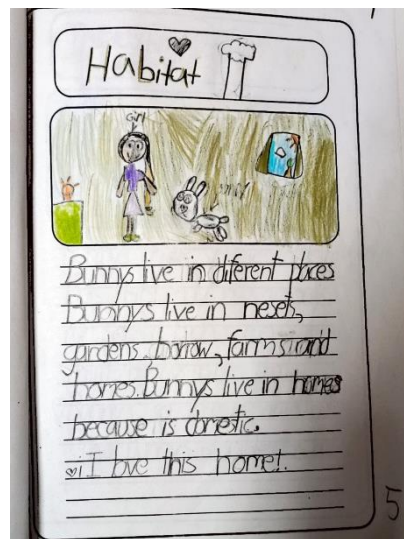 Habitat
girl
Bunnys live in diferent places
Bunnys live in nesets,
gardens, borrow, farms and
homes. Bunnys live in homes
because is domestic.
¡I love this home!
5